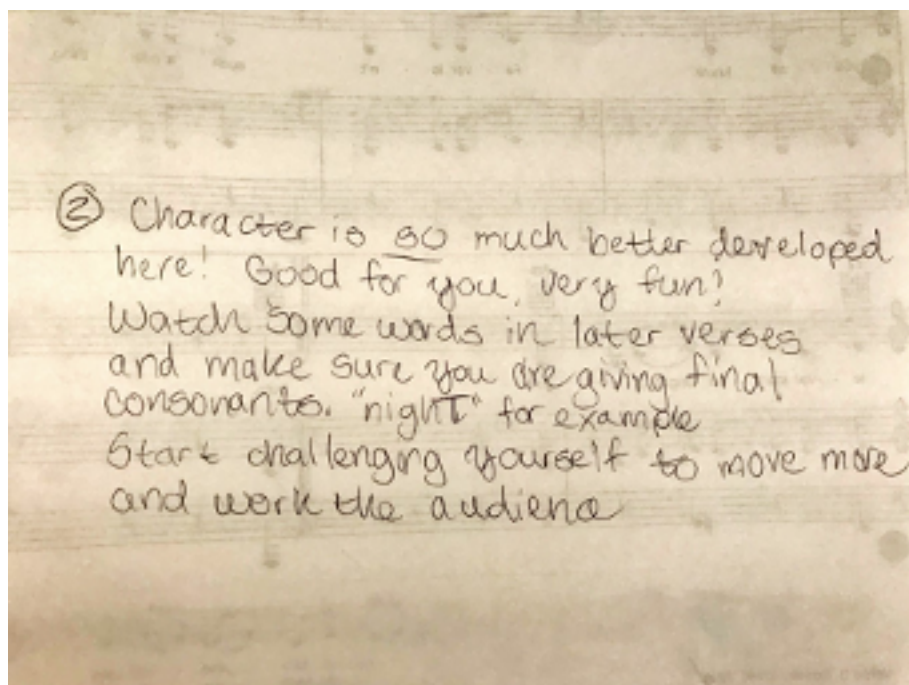 ② Character is so much better developed
here! Good for you, very fun!
Watch some words in later verses
and make sure you are giving final
consonants. "nighT" for example
Start challenging yourself to move more
and work the audience